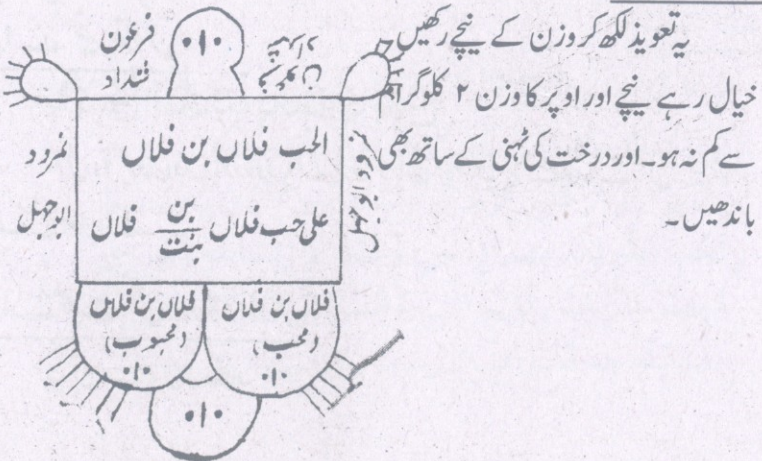 یہ تعویذ لکھ کر وزن کے نیچے رکھیں۔
خیال رہے نیچے اور اوپر کا وزن ۲ کلوگرام
سے کم نہ ہو۔ اور درخت کی ٹہنی کے ساتھ بھی
باندھیں۔
۰۱۰
فرعون
شداد
فرعون
شداد
الحب فلاں بن فلاں
علی حب فلاں بن بنت فلاں
نمرود
ابوجہل
نمرود ابوجہل
فلاں بن فلاں
(محب)
۰۱۰
فلاں بن فلاں
(محبوب)
۰۱۰
۰۱۰